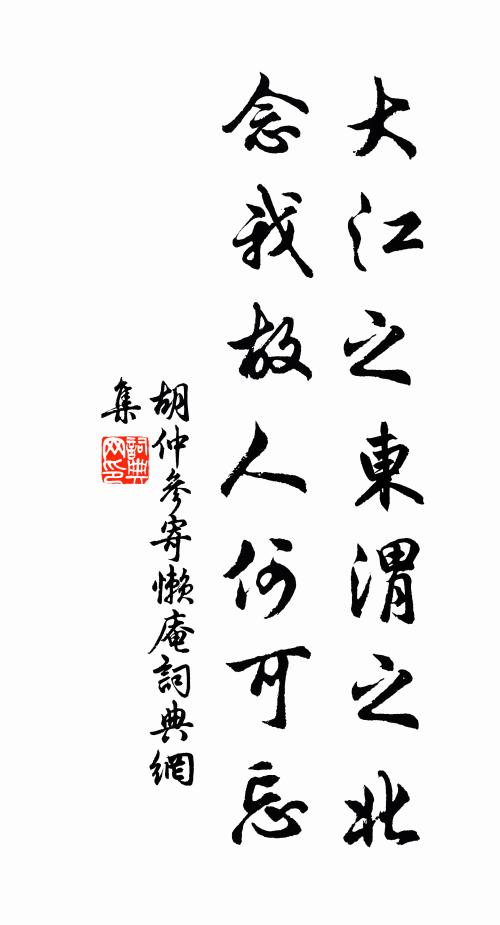 大江之東渭之北
念我故人何可忘
胡仲參寄懶庵詞典網
集
詞典
网印